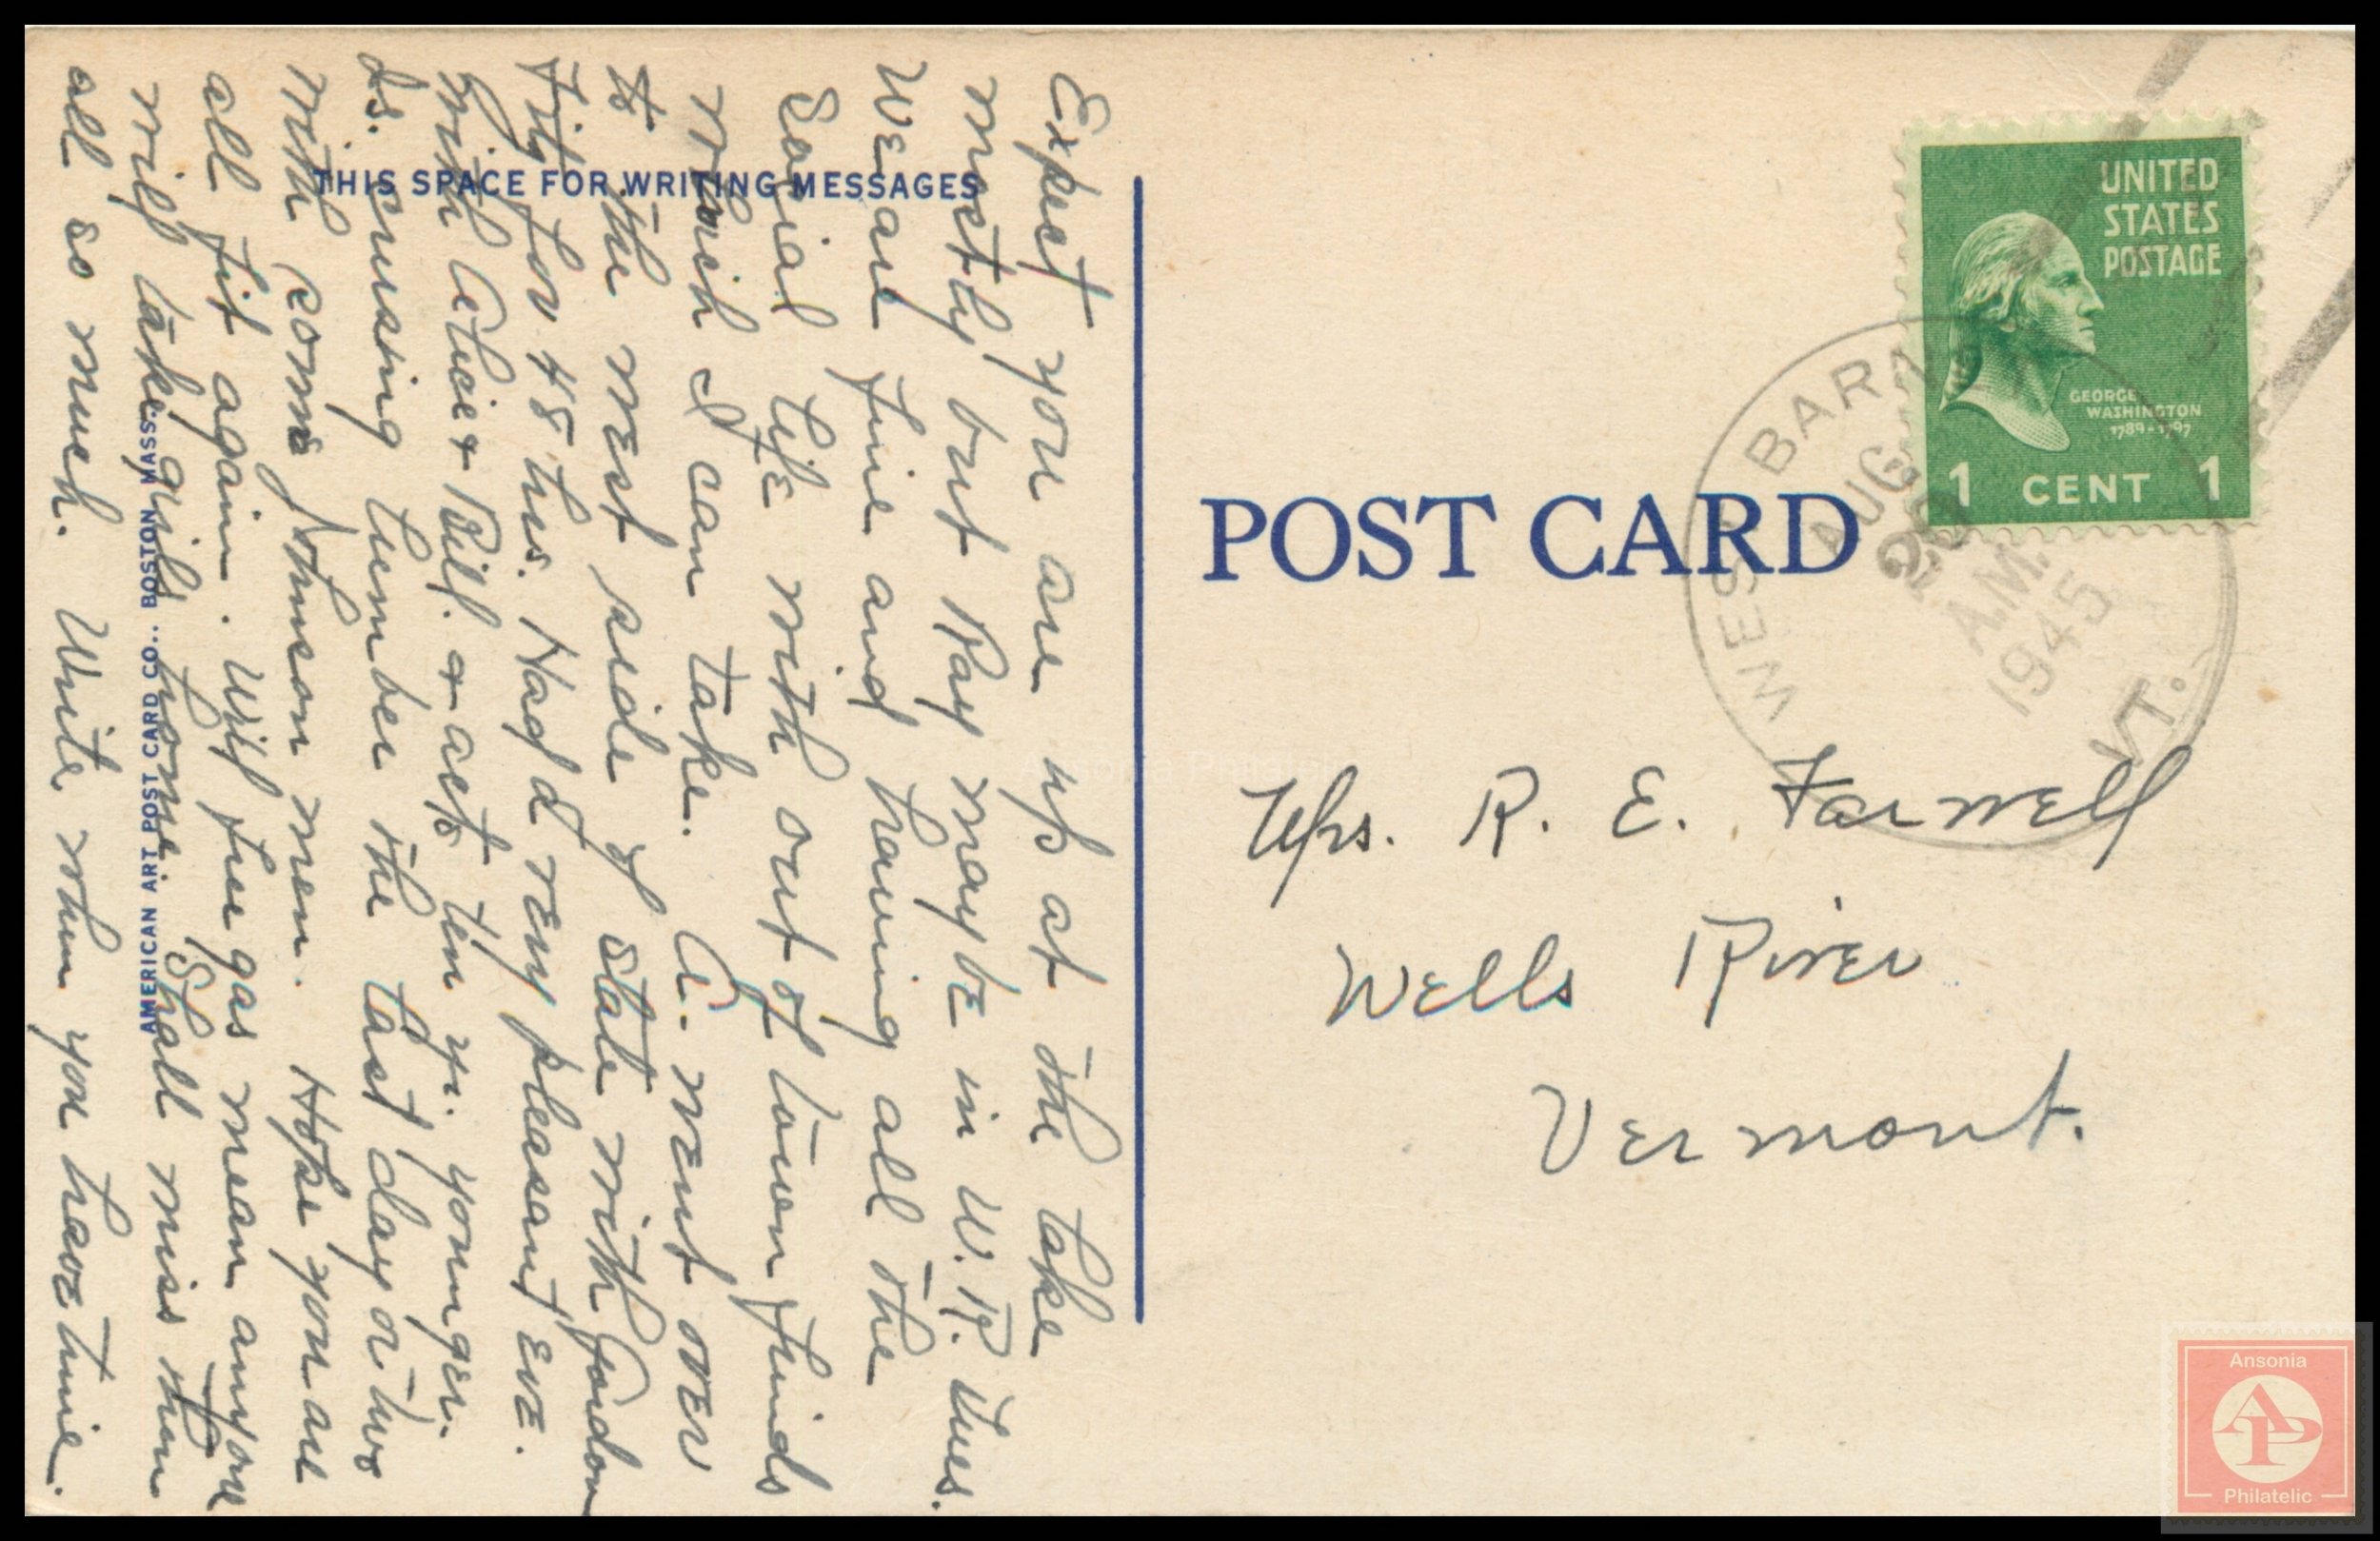 THIS SPACE FOR WRITING MESSAGES
Expect you are up at the lake
mostly but Ray maybe in W. R. Tues.
We are fine and having all the
social life with out of town friends
which I can take. A. went over
to the west side of state with Gordon
for 48 hrs. Had a very pleasant eve.
with & Bill. & acts ten yr. younger.
Is cruising lumber the last day or two
with some Johnson men. Hope you are
all fit again. Will free gas mean anyone
will take girls home. Shall miss them
all so much. Write when you have time.
AMERICAN ART POST CARD CO., BOSTON, MASS.
POST CARD
UNITED
STATES
POSTAGE
GEORGE
WASHINGTON
1789-1797
1 CENT 1
WEST BAR
AUG
A.M.
1945
VT.
Mrs. R. E. Farwell
Wells River
Vermont.
Ansonia Philatelic
Ansonia
AP
Philatelic